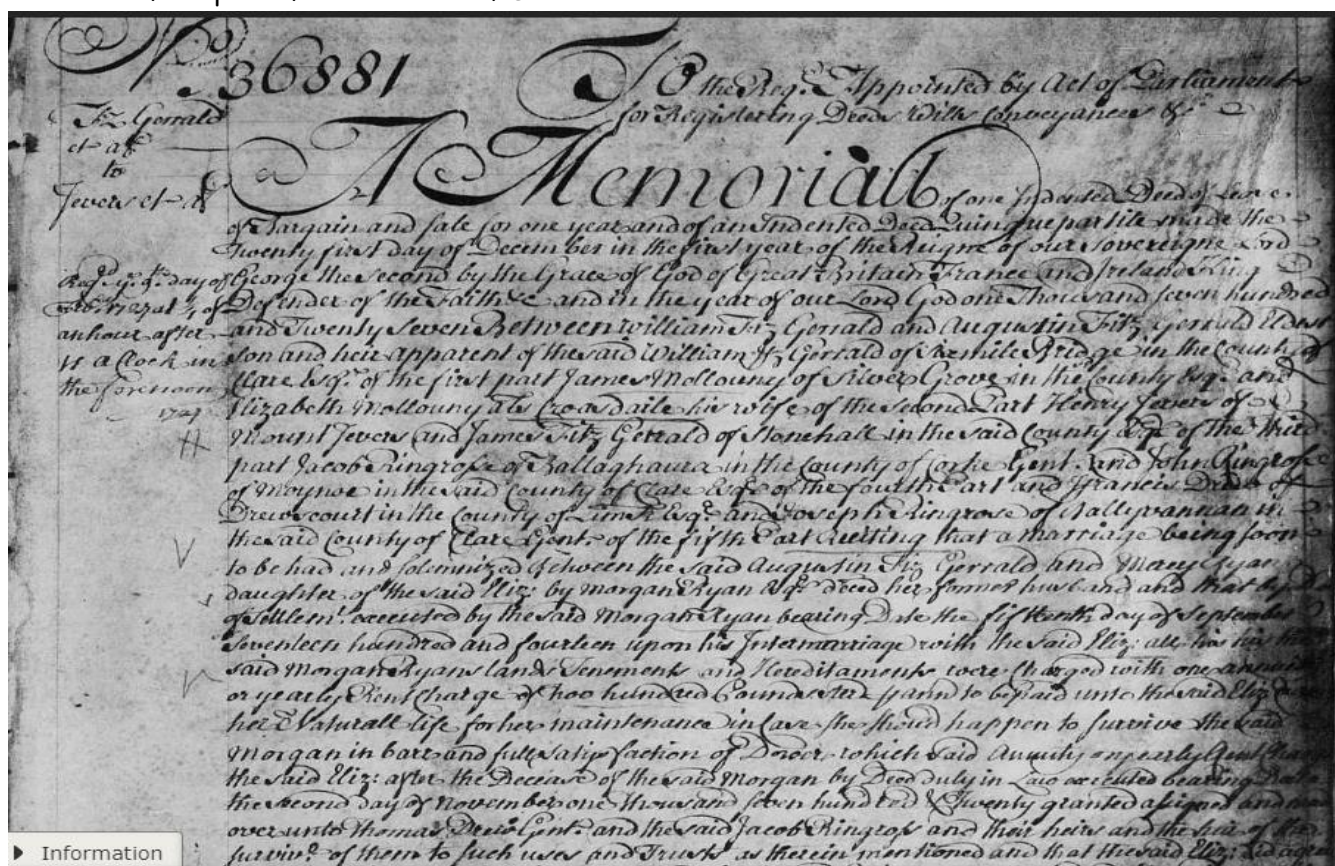 No
36881
To the Regr Appointed by Act of Parliament
for Registering Deeds Wills Conveyances &c
Fz Gerrald
et als
to
Jevers et als
A Memoriall of one Indented Deed of Lease
of Bargain and sale for one year and of an Indented Deed Quinquepartite made the
Twenty first day of December in the first year of the Reigne of our Sovereigne Lord
George the second by the Grace of God of Great Britain France and Ireland King
Defender of the Faith &c and in the year of our Lord God one Thousand seven hundred
and Twenty Seven Between william Fitz Gerrald and Augustin Fitz Gerrald Eldest
son and heir apparent of the said William Fz Gerrald of Sixmile Bridge in the County of
Clare Esqr of the first part James Mollouny of Silver Grove in the County Esqr and
Elizabeth Mollouny als Croasdaile his wife of the second Part Henry Jevers of
Mount Jevers and James Fitz Gerrald of Stonehall in the said County Esqr of the Third
part Jacob Ringrose of Ballaghaura in the County of Corke Gent. and John Ringrose
of Moynoe in the said County of Clare Esqr of the fourth Part and Francis Drew of
Drewscourt in the County of Limk Esqr and Joseph Ringrose of in
the said County of Clare Gent. of the fifth Part Reciting that a marriage being soon
to be had and solemnized Between the said Augustin Fiz Gerrald and Mary Ryan
daughter of the said Eliz: by Morgan Ryan Esqr deced her former husband and that by
of Settlemt. executed by the said Morgan Ryan bearing Date the fifteenth day of September
Seventeen hundred and fourteen upon his Intermarriage with the said Eliz: all his
said Morgan Ryans lands Tenements and Hereditaments were Charged with one annuity
or yearly Rent Charge of two hundred Pounds ster p ann to be paid unto the said Eliz
her Naturall life for her maintenance in Case she should happen to survive the said
Morgan in barr and full satisfaction of Dower which said Annuity or yearly Rent Charge
the said Eliz: after the Decease of the said Morgan by Deed duly in Law executed bearing Date
the second day of November one thousand seven hundred & Twenty granted assigned and made
over unto Thomas Drew Gent. and the said Jacob Ringrose and their heirs and the heir of the
surviv.r of them to such uses and Trusts as therein mentioned and that the said Eliz:
Regd ye day of
at of
an hour after
a Clock in
the forenoon
1727
Information